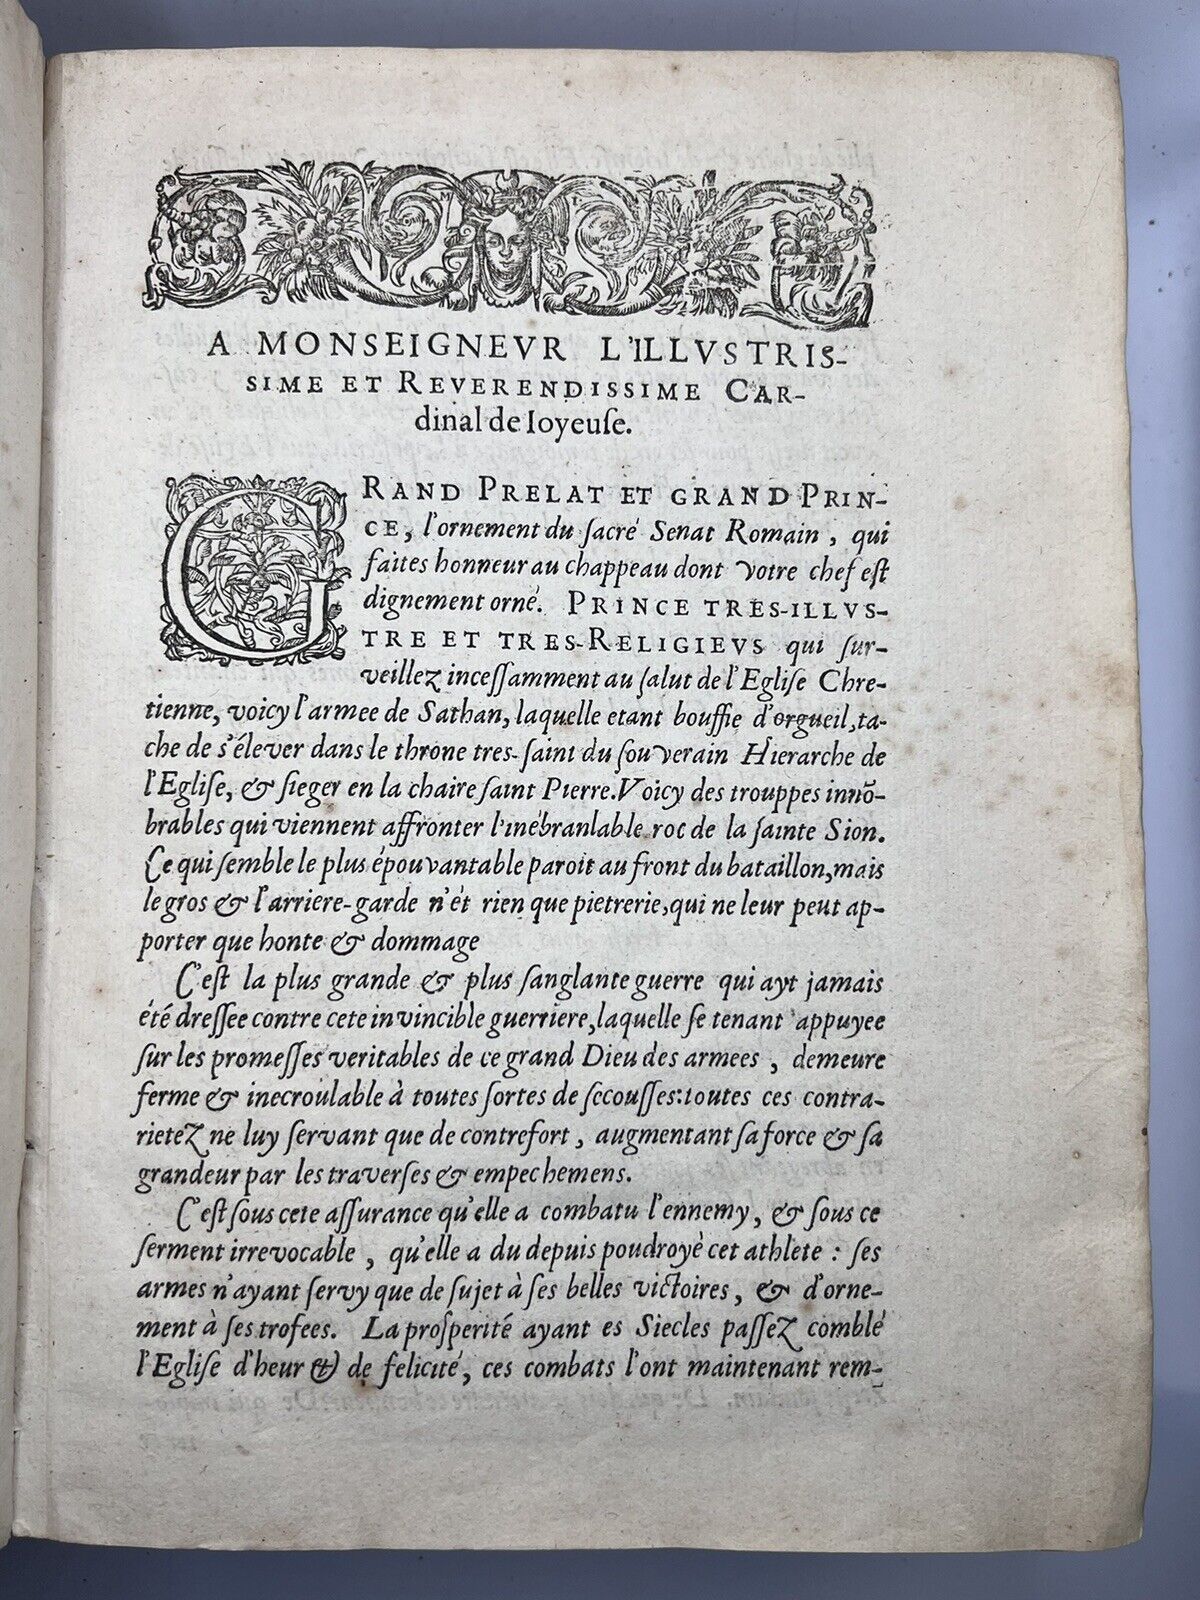 A MONSEIGNEVR L'ILLVSTRIS-
SIME ET REVERENDISSIME CAR-
dinal de Ioyeuſe.
GRAND PRELAT ET GRAND PRIN-
CE, l'ornement du ſacré Senat Romain, qui
faites honneur au chappeau dont votre chef eſt
dignement orné. PRINCE TRES-ILLVS-
TRE ET TRES-RELIGIEVS qui ſur-
veillez inceſſamment au ſalut de l'Egliſe Chre-
tienne, voicy l'armee de Sathan, laquelle etant bouffie d'orgueil, ta-
che de s'élever dans le throne tres-ſaint du ſouverain Hierarche de
l'Egliſe, & ſieger en la chaire ſaint Pierre. Voicy des trouppes innõ-
brables qui viennent affronter l'inébranlable roc de la ſainte Sion.
Ce qui ſemble le plus épouvantable paroit au front du bataillon, mais
le gros & l'arriere-garde n'ét rien que pietrerie, qui ne leur peut ap-
porter que honte & dommage
C'eſt la plus grande & plus ſanglante guerre qui ayt jamais
été dreſſee contre cete invincible guerriere, laquelle ſe tenant appuyee
ſur les promeſſes veritables de ce grand Dieu des armees, demeure
ferme & inecroulable à toutes ſortes de ſecouſſes: toutes ces contra-
rietez ne luy ſervant que de contrefort, augmentant ſa force & ſa
grandeur par les traverſes & empechemens.
C'eſt ſous cete aſſurance qu'elle a combatu l'ennemy, & ſous ce
ſerment irrevocable, qu'elle a du depuis poudroyé cet athlete: ſes
armes n'ayant ſervy que de ſujet à ſes belles victoires, & d'orne-
ment à ſes trofees. La proſperité ayant es Siecles paſſez comblé
l'Egliſe d'heur & de felicité, ces combats l'ont maintenant rem-